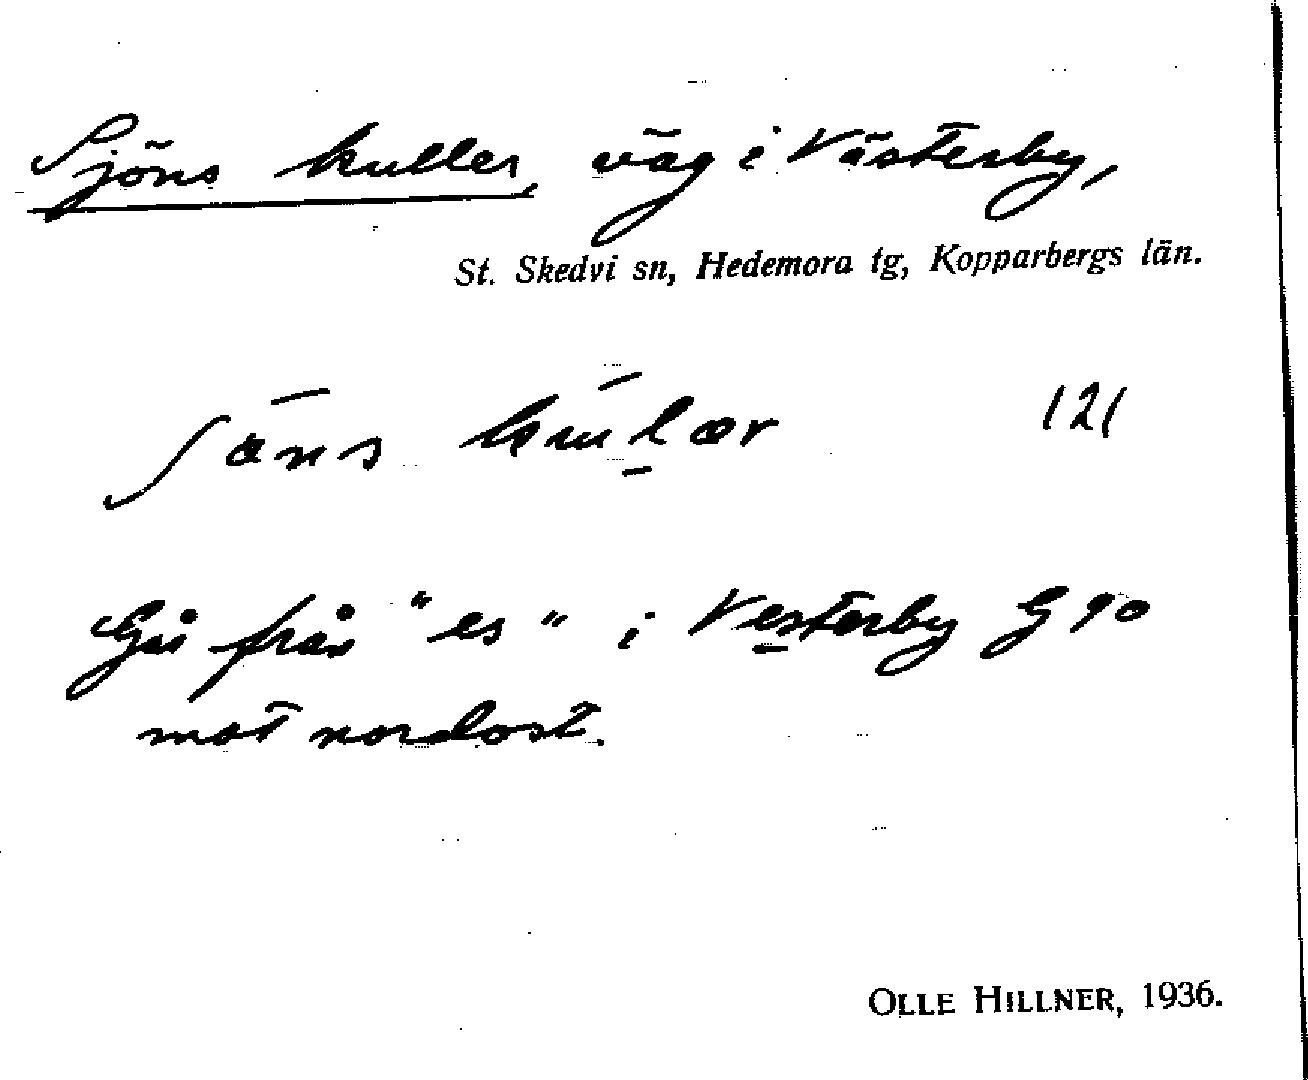 Sjöns kuller, väg i Västerby,
St. Skedvi sn, Hedemora tg, Kopparbergs län.
121
Går från "es" i Vesterby G 90
mot nordost.
OLLE HILLNER, 1936.